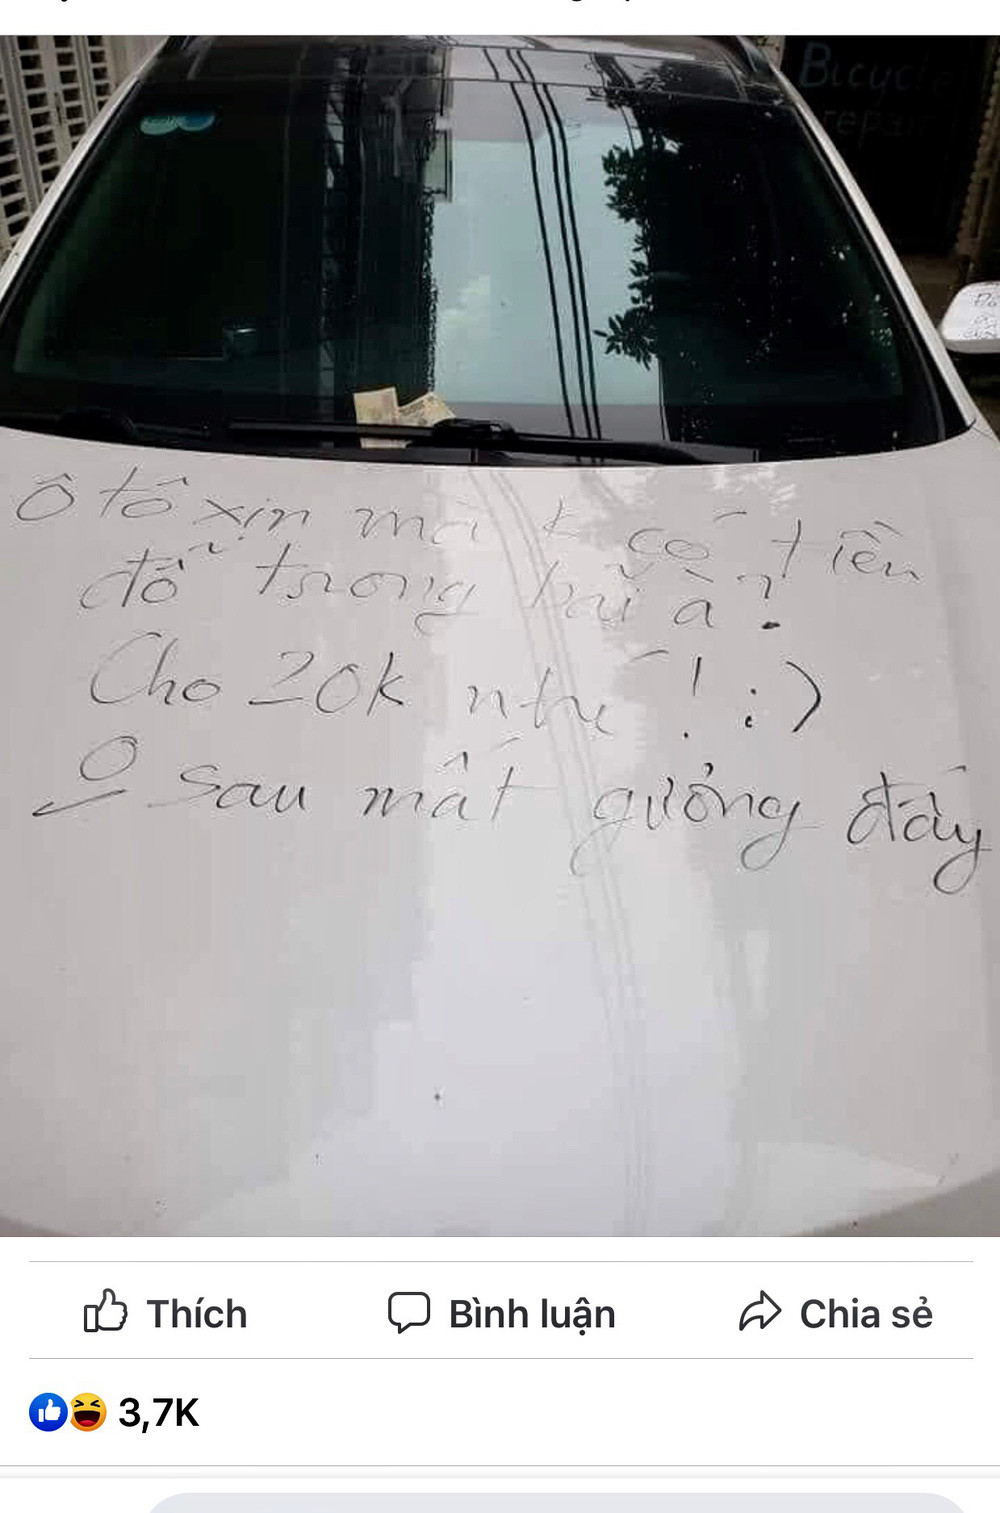 Bicycle
repair
Ô tô xịn mà k có tiền
đỗ trong bãi à?
Cho 20k nhé! :)
Ko sau mất gương đấy
Thích
Bình luận
Chia sẻ
3,7K